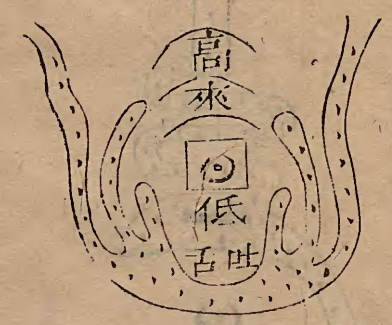 高
來
低
吐舌